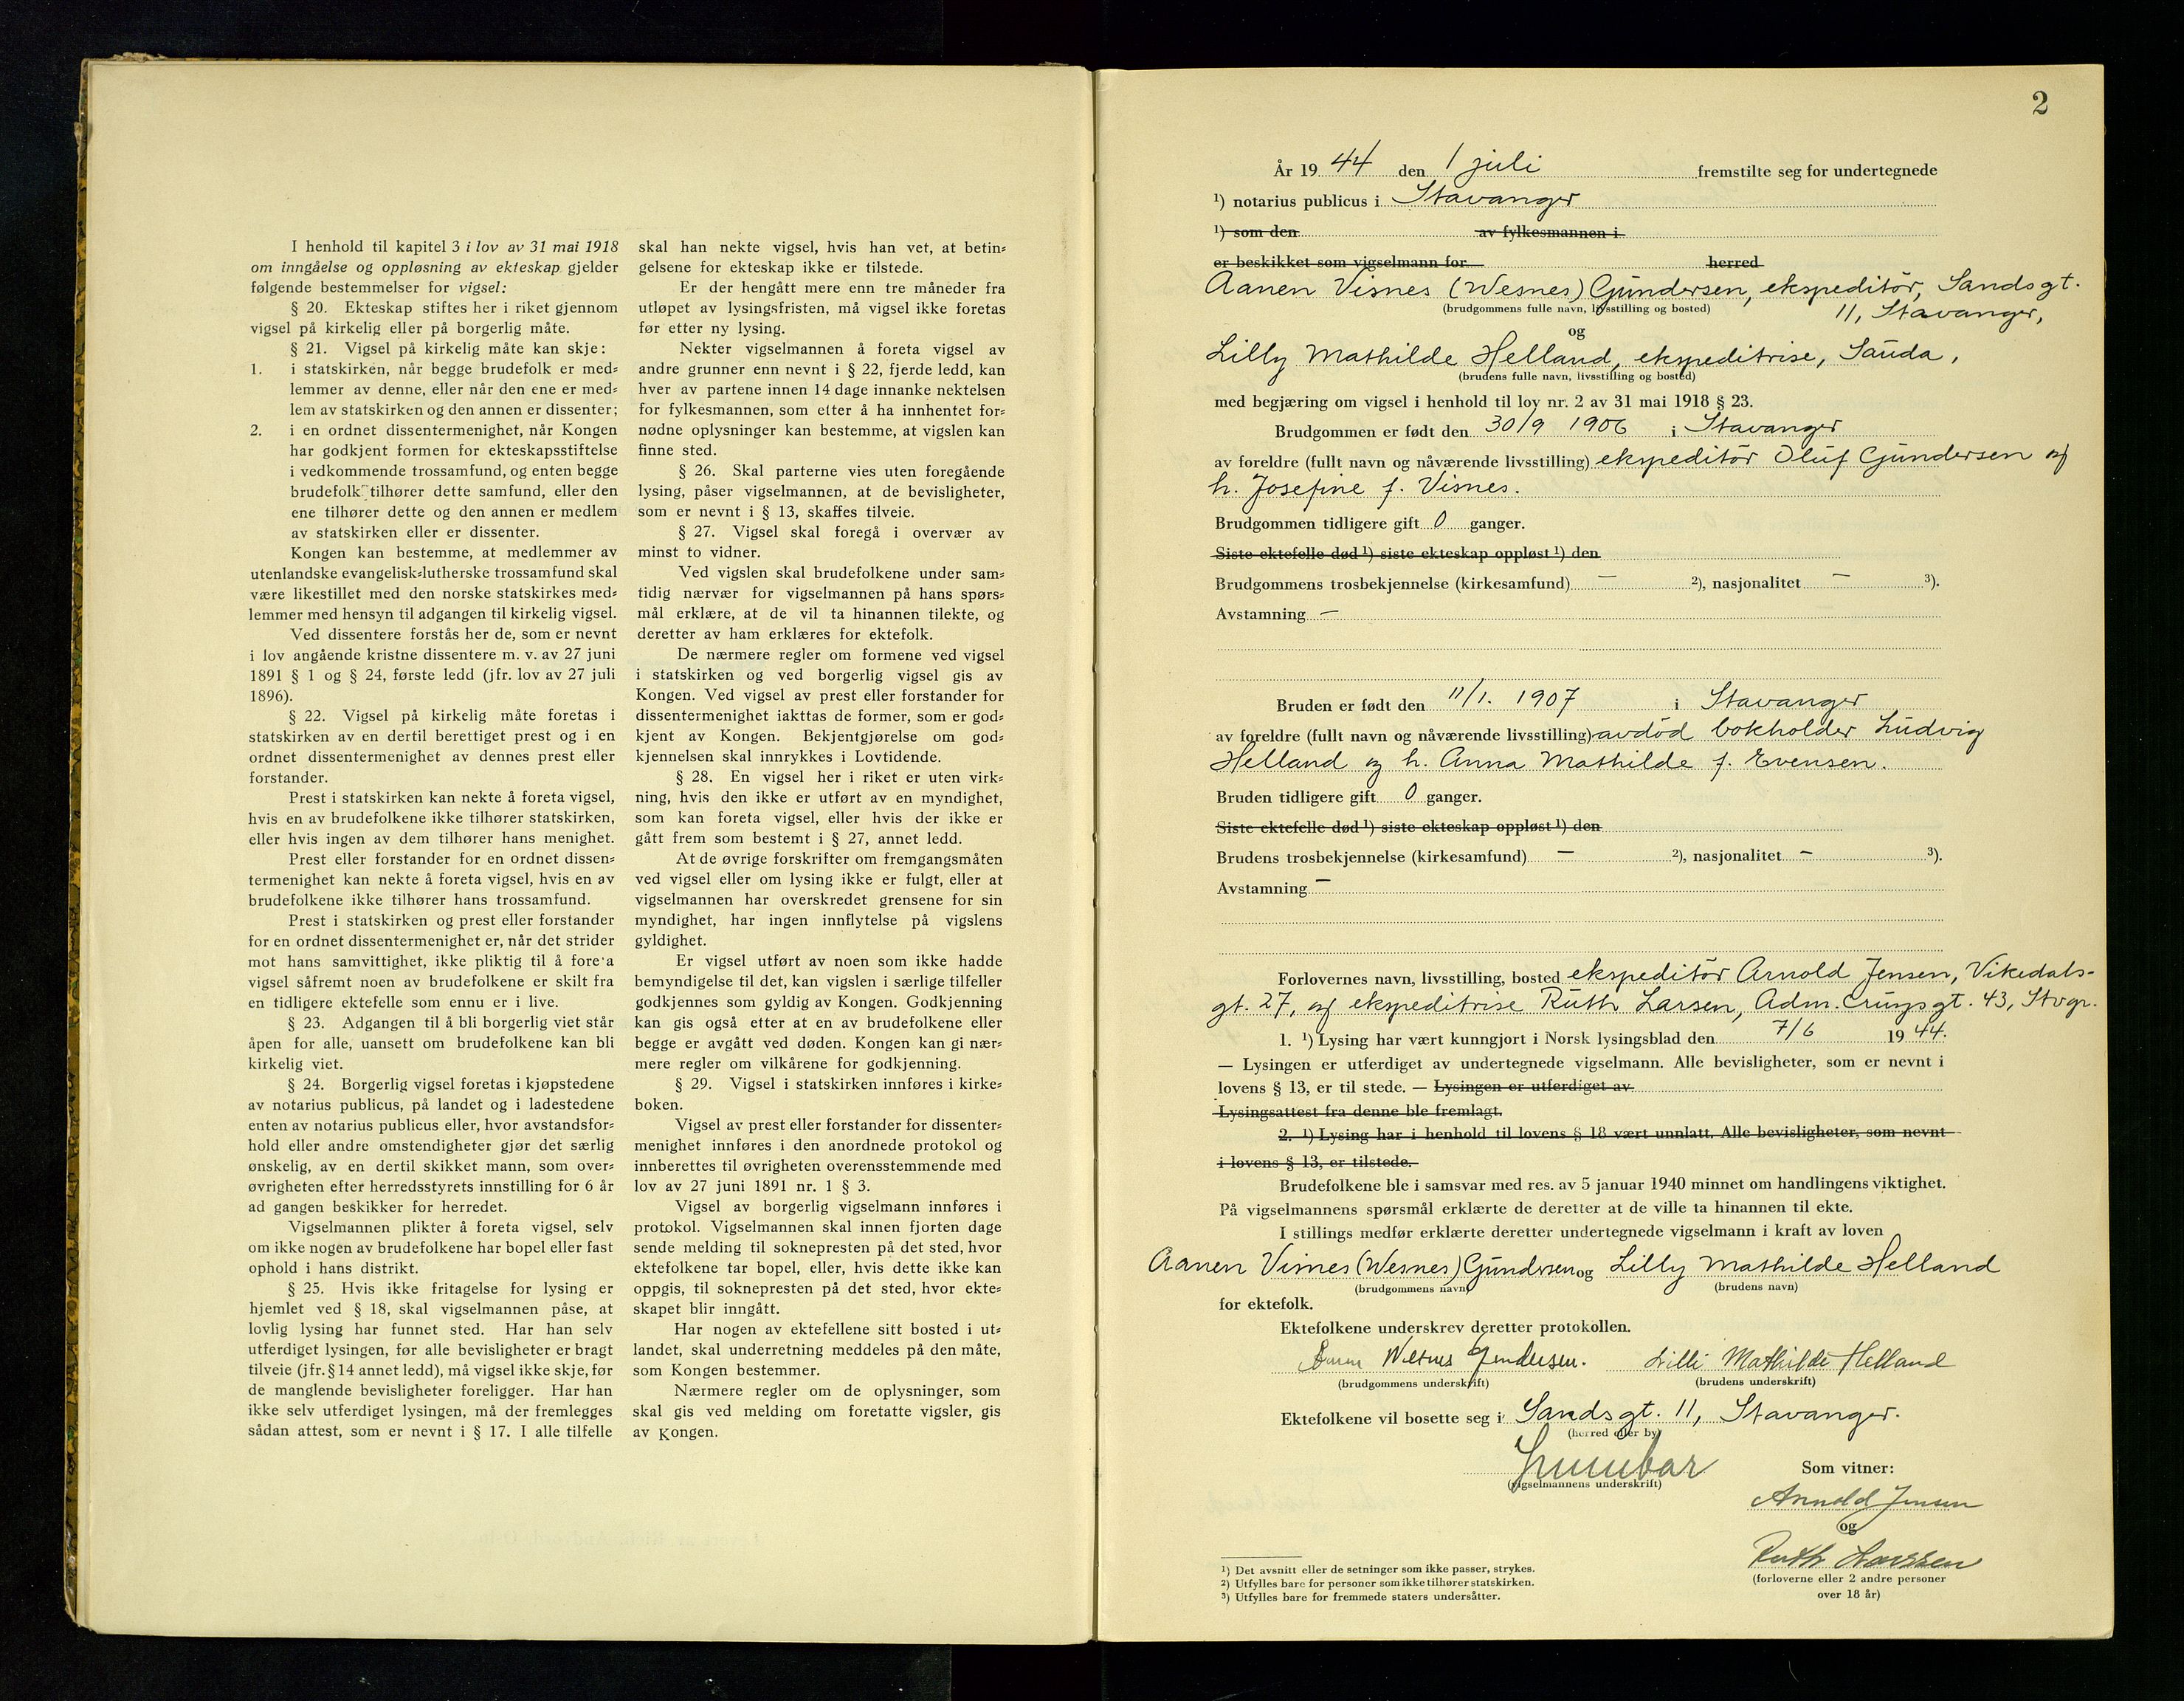 I henhold til kapitel 3 i lov av 31 mai 1918
om inngåelse og oppløsning av ekteskap gjelder
følgende bestemmelser for vigsel:
§ 20. Ekteskap stiftes her i riket gjennom
vigsel på kirkelig eller på borgerlig måte.
§ 21. Vigsel på kirkelig måte kan skje:
1. i statskirken, når begge brudefolk er med-
lemmer av denne, eller når den ene er med-
lem av statskirken og den annen er dissenter;
2. i en ordnet dissentermenighet, når Kongen
har godkjent formen for ekteskapsstiftelse
i vedkommende trossamfund, og enten begge
brudefolk tilhører dette samfund, eller den
ene tilhører dette og den annen er medlem
av statskirken eller er dissenter.
Kongen kan bestemme, at medlemmer av
utenlandske evangelisk-lutherske trossamfund skal
være likestillet med den norske statskirkes med-
lemmer med hensyn til adgangen til kirkelig vigsel.
Ved dissentere forstås her de, som er nevnt
i lov angående kristne dissentere m. v. av 27 juni
1891 § 1 og § 24, første ledd (jfr. lov av 27 juli
1896).
§ 22. Vigsel på kirkelig måte foretas i
statskirken av en dertil berettiget prest og i en
ordnet dissentermenighet av dennes prest eller
forstander.
Prest i statskirken kan nekte å foreta vigsel,
hvis en av brudefolkene ikke tilhører statskirken,
eller hvis ingen av dem tilhører hans menighet.
Prest eller forstander for en ordnet dissen-
termenighet kan nekte å foreta vigsel, hvis en av
brudefolkene ikke tilhører hans trossamfund.
Prest i statskirken og prest eller forstander
for en ordnet dissentermenighet er, når det strider
mot hans samvittighet, ikke pliktig til å foreta
vigsel såfremt noen av brudefolkene er skilt fra
en tidligere ektefelle som ennu er i live.
§ 23. Adgangen til å bli borgerlig viet står
åpen for alle, uansett om brudefolkene kan bli
kirkelig viet.
§ 24. Borgerlig vigsel foretas i kjøpstedene
av notarius publicus, på landet og i ladestedene
enten av notarius publicus eller, hvor avstandsfor-
hold eller andre omstendigheter gjør det særlig
ønskelig, av en dertil skikket mann, som over-
øvrigheten efter herredsstyrets innstilling for 6 år
ad gangen beskikker for herredet.
Vigselmannen plikter å foreta vigsel, selv
om ikke nogen av brudefolkene har bopel eller fast
ophold i hans distrikt.
§ 25. Hvis ikke fritagelse for lysing er
hjemlet ved § 18, skal vigselmannen påse, at
lovlig lysing har funnet sted. Har han selv
utferdiget lysingen, før alle bevisligheter er bragt
tilveie (jfr. § 14 annet ledd), må vigsel ikke skje, før
de manglende bevisligheter foreligger. Har han
ikke selv utferdiget lysingen, må der fremlegges
sådan attest, som er nevnt i § 17. I alle tilfelle
skal han nekte vigsel, hvis han vet, at betin-
gelsene for ekteskap ikke er tilstede.
Er der hengått mere enn tre måneder fra
utløpet av lysingsfristen, må vigsel ikke foretas
før etter ny lysing.
Nekter vigselmannen å foreta vigsel av
andre grunner enn nevnt i § 22, fjerde ledd, kan
hver av partene innen 14 dage innanke nektelsen
for fylkesmannen, som etter å ha innhentet for-
nødne oplysninger kan bestemme, at vigslen kan
finne sted.
§ 26. Skal parterne vies uten foregående
lysing, påser vigselmannen, at de bevisligheter,
som er nevnt i § 13, skaffes tilveie.
§ 27. Vigsel skal foregå i overvær av
minst to vidner.
Ved vigslen skal brudefolkene under sam-
tidig nærvær for vigselmannen på hans spørs-
mål erklære, at de vil ta hinannen tilekte, og
deretter av ham erklæres for ektefolk.
De nærmere regler om formene ved vigsel
i statskirken og ved borgerlig vigsel gis av
Kongen. Ved vigsel av prest eller forstander for
dissentermenighet iakttas de former, som er god-
kjent av Kongen. Bekjentgjørelse om god-
kjennelsen skal innrykkes i Lovtidende.
§ 28. En vigsel her i riket er uten virk-
ning, hvis den ikke er utført av en myndighet,
som kan foreta vigsel, eller hvis der ikke er
gått frem som bestemt i § 27, annet ledd.
At de øvrige forskrifter om fremgangsmåten
ved vigsel eller om lysing ikke er fulgt, eller at
vigselmannen har overskredet grensene for sin
myndighet, har ingen innflytelse på vigslens
gyldighet.
Er vigsel utført av noen som ikke hadde
bemyndigelse til det, kan vigslen i særlige tilfeller
godkjennes som gyldig av Kongen. Godkjenning
kan gis også etter at en av brudefolkene eller
begge er avgått ved døden. Kongen kan gi nær-
mere regler om vilkårene for godkjenning.
§ 29. Vigsel i statskirken innføres i kirke-
boken.
Vigsel av prest eller forstander for dissenter-
menighet innføres i den anordnede protokol og
innberettes til øvrigheten overensstemmende med
lov av 27 juni 1891 nr. 1 § 3.
Vigsel av borgerlig vigselmann innføres i
protokol. Vigselmannen skal innen fjorten dage
sende melding til soknepresten på det sted, hvor
ektefolkene tar bopel, eller, hvis dette ikke kan
oppgis, til soknepresten på det sted, hvor ekte-
skapet blir inngått.
Har nogen av ektefellene sitt bosted i ut-
landet, skal underretning meddeles på den måte,
som Kongen bestemmer.
Nærmere regler om de oplysninger, som
skal gis ved melding om foretatte vigsler, gis
av Kongen.
2
År 19 44 den 1 juli fremstilte seg for undertegnede
¹) notarius publicus i Stavanger
¹) som den av fylkesmannen i
er beskikket som vigselmann for herred
Aanen Visnes (Wesnes) Gundersen, ekspeditör, Sandsgt.
(brudgommens fulle navn, livsstilling og bosted) 11, Stavanger,
og
Lilly Mathilde Helland, ekspeditrise, Sauda,
(brudens fulle navn, livsstilling og bosted)
med begjæring om vigsel i henhold til lov nr. 2 av 31 mai 1918 § 23.
Brudgommen er født den 30/9 1906 i Stavanger
av foreldre (fullt navn og nåværende livsstilling) ekspeditör Oluf Gundersen og
h. Josefine f. Visnes.
Brudgommen tidligere gift 0 ganger.
Siste ektefelle død ¹) siste ekteskap oppløst ¹) den
Brudgommens trosbekjennelse (kirkesamfund) — ²), nasjonalitet — ³).
Avstamning —
Bruden er født den 11/1. 1907 i Stavanger
av foreldre (fullt navn og nåværende livsstilling) avdöd bokholder Ludvig
Helland og h. Anna Mathilde f. Evensen.
Bruden tidligere gift 0 ganger.
Siste ektefelle død ¹) siste ekteskap oppløst ¹) den
Brudens trosbekjennelse (kirkesamfund) — ²), nasjonalitet — ³).
Avstamning —
Forlovernes navn, livsstilling, bosted ekspeditör Arnold Jensen, Vikedals-
gt. 27, og ekspeditrise Ruth Larsen, Adm. Cruys gt. 43, Stvgr.
1. ¹) Lysing har vært kunngjort i Norsk lysingsblad den 7/6 19 44.
— Lysingen er utferdiget av undertegnede vigselmann. Alle bevisligheter, som er nevnt i
lovens § 13, er til stede. — Lysingen er utferdiget av
Lysingsattest fra denne ble fremlagt.
2. ¹) Lysing har i henhold til lovens § 18 vært unnlatt. Alle bevisligheter, som nevnt
i lovens § 13, er tilstede.
Brudefolkene ble i samsvar med res. av 5 januar 1940 minnet om handlingens viktighet.
På vigselmannens spørsmål erklærte de deretter at de ville ta hinannen til ekte.
I stillings medfør erklærte deretter undertegnede vigselmann i kraft av loven
Aanen Visnes (Wesnes) Gundersen og Lilly Mathilde Helland
(brudgommens navn) (brudens navn)
for ektefolk.
Ektefolkene underskrev deretter protokollen.
Gundersen. Lilli Mathilde Helland
(brudgommens underskrift) (brudens underskrift)
Ektefolkene vil bosette seg i Sandsgt. 11, Stavanger.
(herred eller by)
(vigselmannens underskrift)
Som vitner:
Arnold Jensen
og
Ruth Larssen
(forloverne eller 2 andre personer
over 18 år)
¹) Det avsnitt eller de setninger som ikke passer, strykes.
²) Utfylles bare for personer som ikke tilhører statskirken.
³) Utfylles bare for fremmede staters undersåtter.